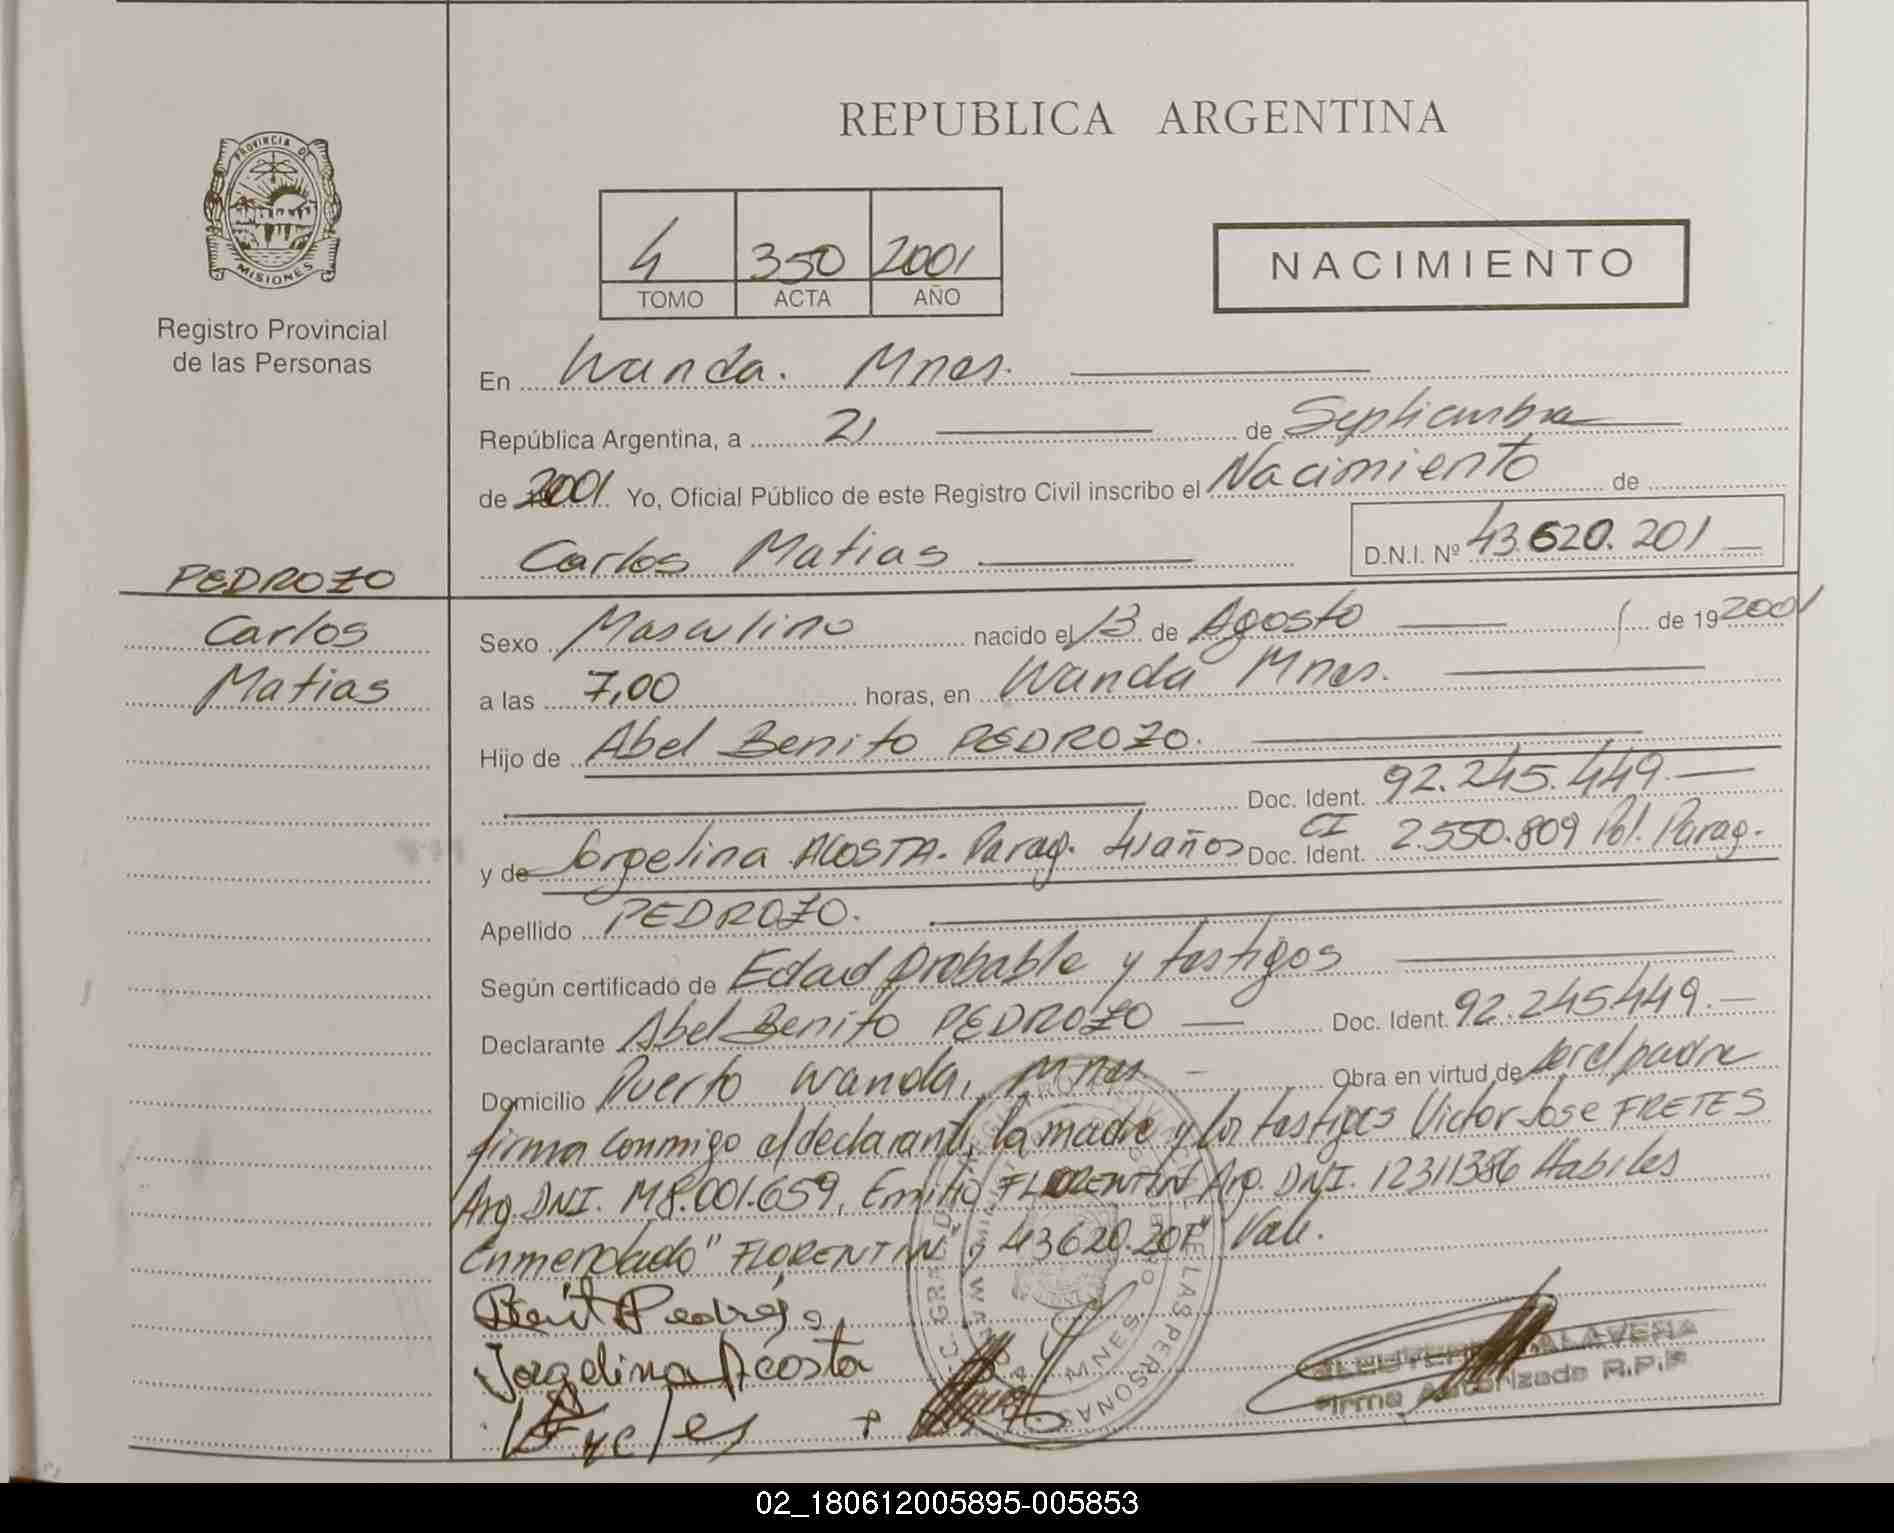 REPUBLICA ARGENTINA
PROVINCIA DE
MISIONES
Registro Provincial
de las Personas
4 350 2001
TOMO ACTA AÑO
NACIMIENTO
En Wanda. Mnes.
República Argentina, a 21 de Septiembre
de 2001 Yo, Oficial Público de este Registro Civil inscribo el Nacimiento de
Carlos Matias D.N.I. Nº 43.620.201
PEDROZO
Carlos
Matias
Sexo Masculino nacido el 13 de Agosto de 19 2001
a las 7,00 horas, en Wanda Mnes.
Hijo de Abel Benito PEDROZO.
Doc. Ident. 92.245.449.
y de Jorgelina ACOSTA. Parag. 41 años CI Doc. Ident. 2.550.809 Pol. Parag.
Apellido PEDROZO.
Según certificado de Edad probable y testigos
Declarante Abel Benito PEDROZO Doc. Ident. 92.245.449.
Domicilio Puerto Wanda, Mnes. Obra en virtud de ser el padre
firma conmigo el declarante, la madre y los testigos Victor Jose FRETES
Arg. DNI. M8.001.659, Emilio FLORENTIN Arg. DNI. 12311386 Habiles
Enmendado "FLORENTIN y 43620.201" Vale.
Benit Pedrozo
Jorgelina Acosta
DE LAS PERSONAS
MNES.
ELEUTERIO GALAVERA
Firma Autorizada R.P.P
02_180612005895-005853